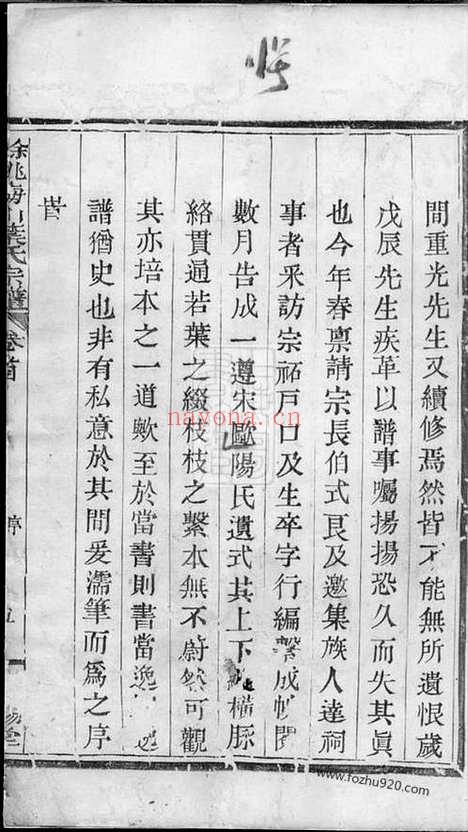 間重光先生又續修焉然皆不能無所遺恨歲
戊辰先生疾革以譜事囑揚揚恐久而失其眞
也今年春禀請宗長伯式艮及邀集族人達祠
事者釆訪宗祏戶口及生卒字行編成帙閱
數月告成一遵宋歐陽氏遺式其上下橫脈
絡貫通若葉之綴枝枝之繫本無不蔚然可觀
其亦培本之一道歟至於當書則書當逸逸
譜猶史也非有私意於其間爰濡筆而爲之序
旹
餘兆海山葉氏宗譜 卷首 序 五
nayona.cn
www.fozhu920.com